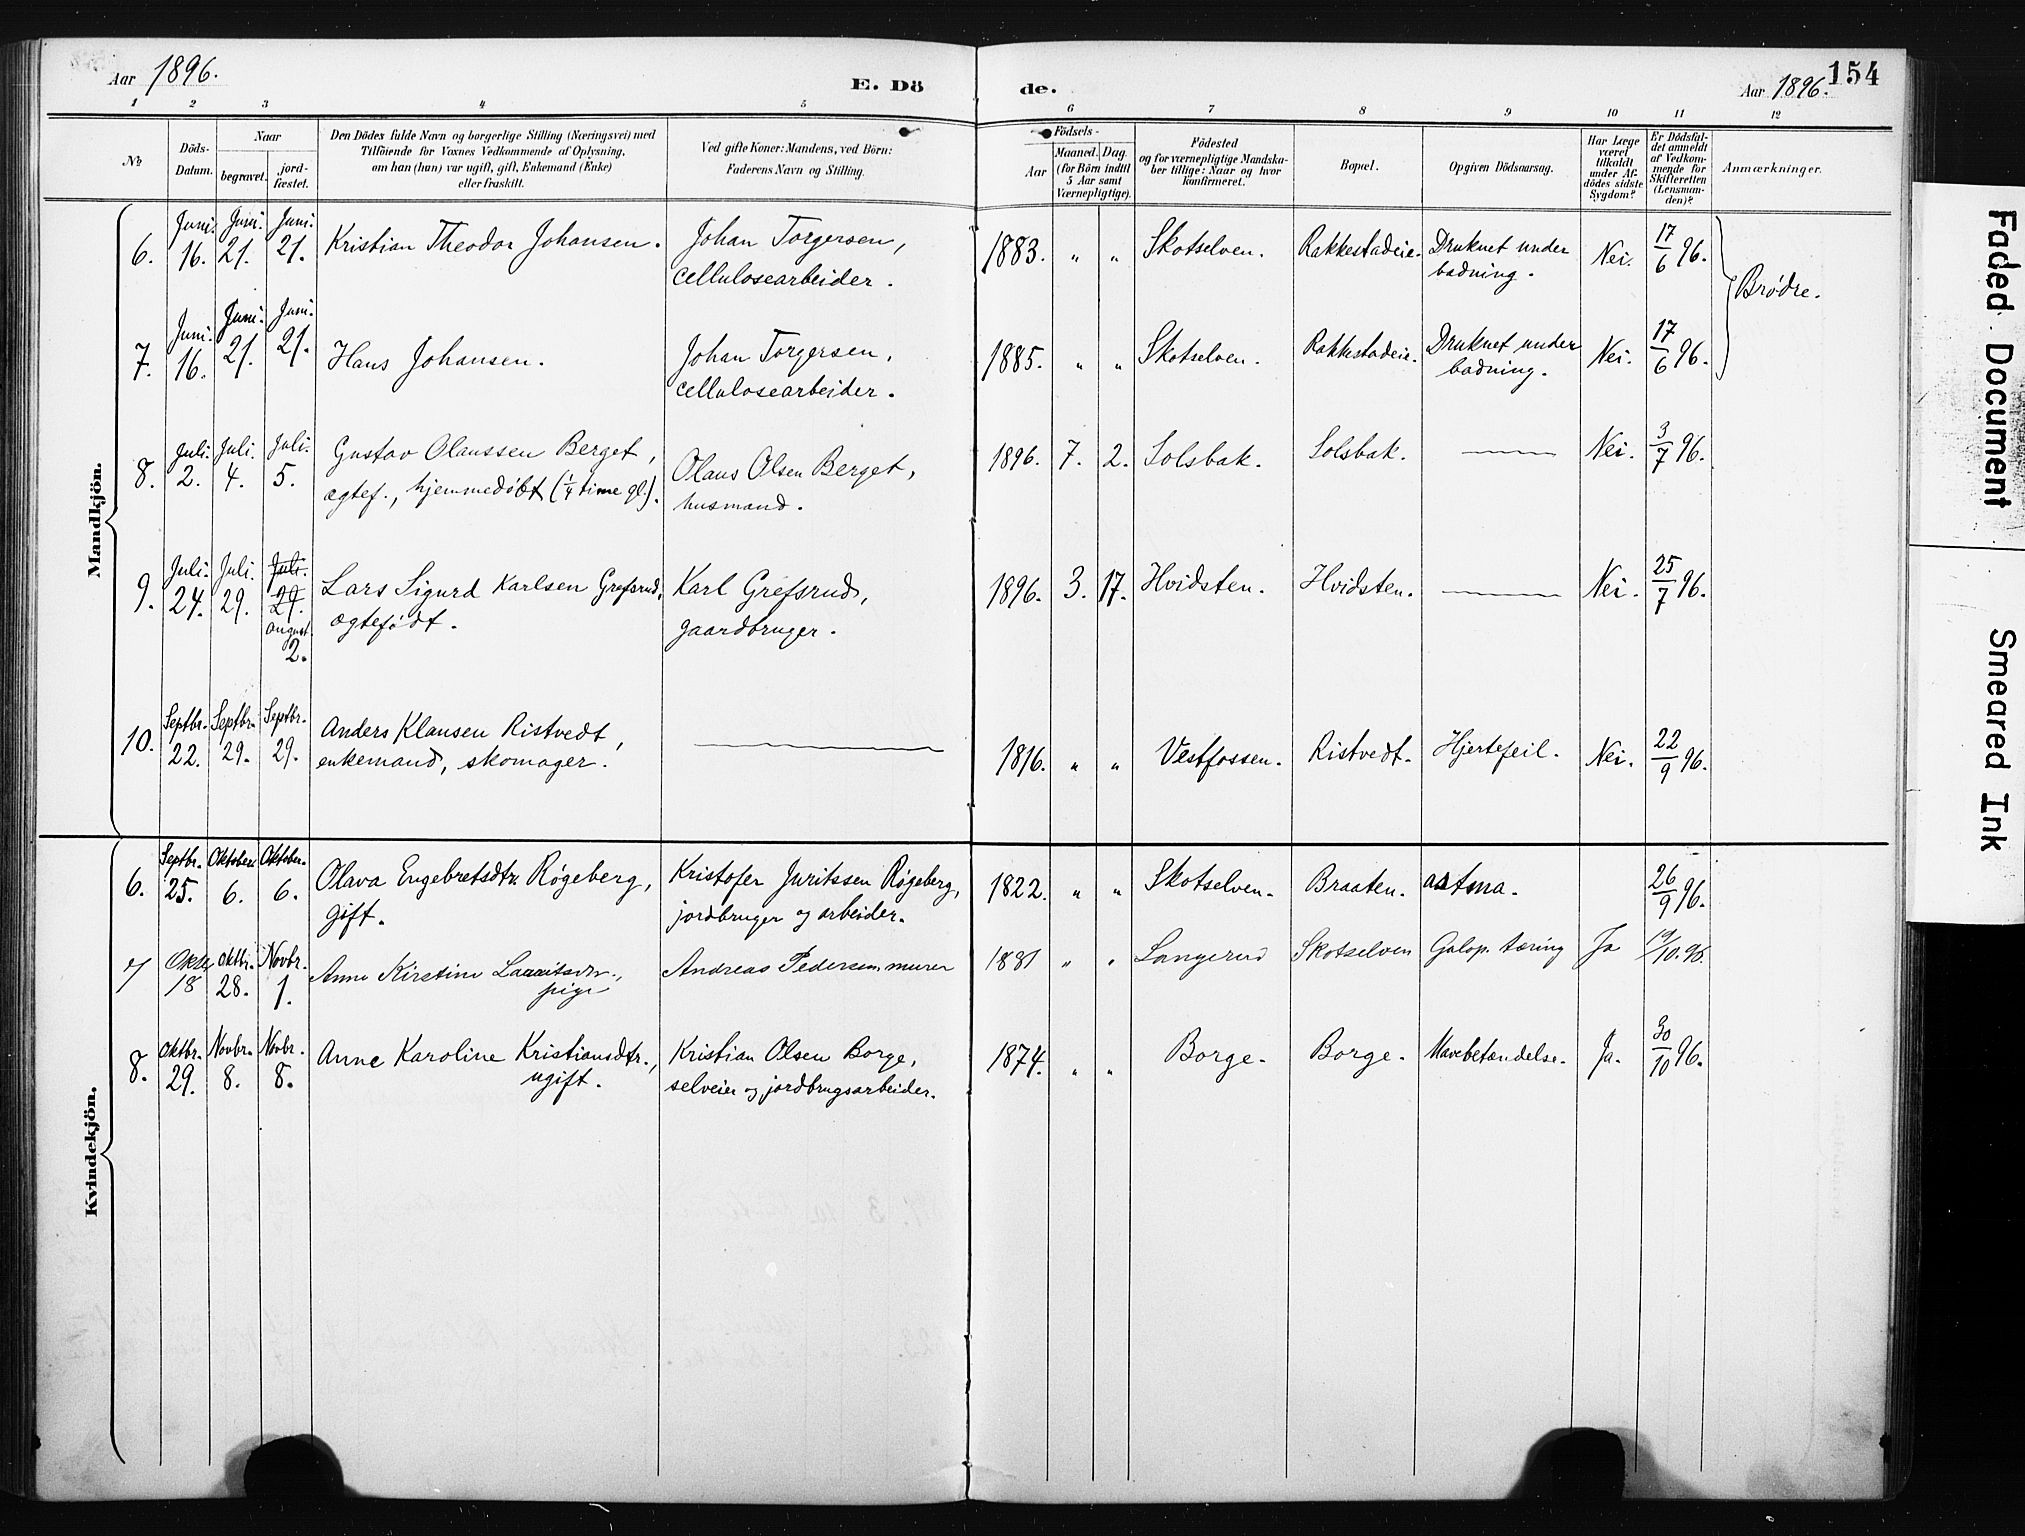 Aar 1896.
E. Dö
de.
Aar 1896.
154
1 2 3 4 5 6 7 8 9 10 11 12
No
Döds-
Datum.
Naar
begravet.
jord-
fæstet.
Den Dödes fulde Navn og borgerlige Stilling (Næringsvei) med
Tilföiende for Voxnes Vedkommende af Oplysning,
om han (hun) var ugift, gift, Enkemand (Enke)
eller fraskilt.
Ved gifte Koner: Mandens, ved Börn:
Faderens Navn og Stilling.
Födsels-
Aar
Maaned. Dag.
(for Börn indtil
5 Aar samt
Værnepligtige).
Födested
og for værnepligtige Mandska-
ber tillige: Naar og hvor
konfirmeret.
Bopæl.
Opgiven Dödsaarsag.
Har Læge
været
tilkaldt
under Af-
dödes sidste
Sygdom?
Er Dödsfal-
det anmeldt
af Vedkom-
mende for
Skifteretten
(Lensman-
den)?
Anmærkninger.
Mandkjön.
6. Juni. 16. Juni. 21. Juni. 21. Kristian Theodor Johansen. Johan Torgersen,
cellulosearbeider.
1883. " " Skotselven. Rakkestadeie. Druknet under
badning. Nei. 17/6 96.
Brødre.
7. Juni. 16. Juni. 21. Juni. 21. Hans Johansen. Johan Torgersen,
cellulosearbeider.
1885. " " Skotselven. Rakkestadeie. Druknet under
badning. Nei. 17/6 96.
8. Juli. 2. Juli. 4. Juli. 5. Gustav Olaussen Berget,
ægtef., hjemmedøbt (1/4 time gl.). Olaus Olsen Berget,
husmand.
1896. 7. 2. Solsbak. Solsbak. — Nei. 3/7 96.
9. Juli. 24. Juli. 29. Juli. 29. august. 2. Lars Sigurd Karlsen Grefsrud,
ægtefødt. Karl Grefsrud,
gaardbruger.
1896. 3. 17. Hvidsten. Hvidsten. — Nei. 25/7 96.
10. Septbr. 22. Septbr. 29. Septbr. 29. Anders Klausen Ristvedt,
enkemand, skomager. —
1816. " " Vestfossen. Ristvedt. Hjertefeil. Nei. 22/9 96.
Kvindekjön.
6. Septbr. 25. Oktober. 6. Oktober. 6. Olava Engebretsdtr. Røgeberg,
gift. Kristofer Juritssen Røgeberg,
jordbruger og arbeider.
1822. " " Skotselven. Braaten. astma. 26/9 96.
7 Oktbr 18 Oktbr. 28. Novbr. 1. Anne Kirstine Lauritsdtr.,
pige Andreas Pedersen murer
1881 " " Langerud Skotselven Galop. tæring Ja 19/10. 96.
8. Oktbr. 29. Novbr. 8. Novbr. 8. Anne Karoline Kristiansdtr.,
ugift. Kristian Olsen Borge,
selveier og jordbrugsarbeider.
1874. " " Borge. Borge. Mavebetændelse. Ja. 30/10 96.
Faded Document
Smeared Ink